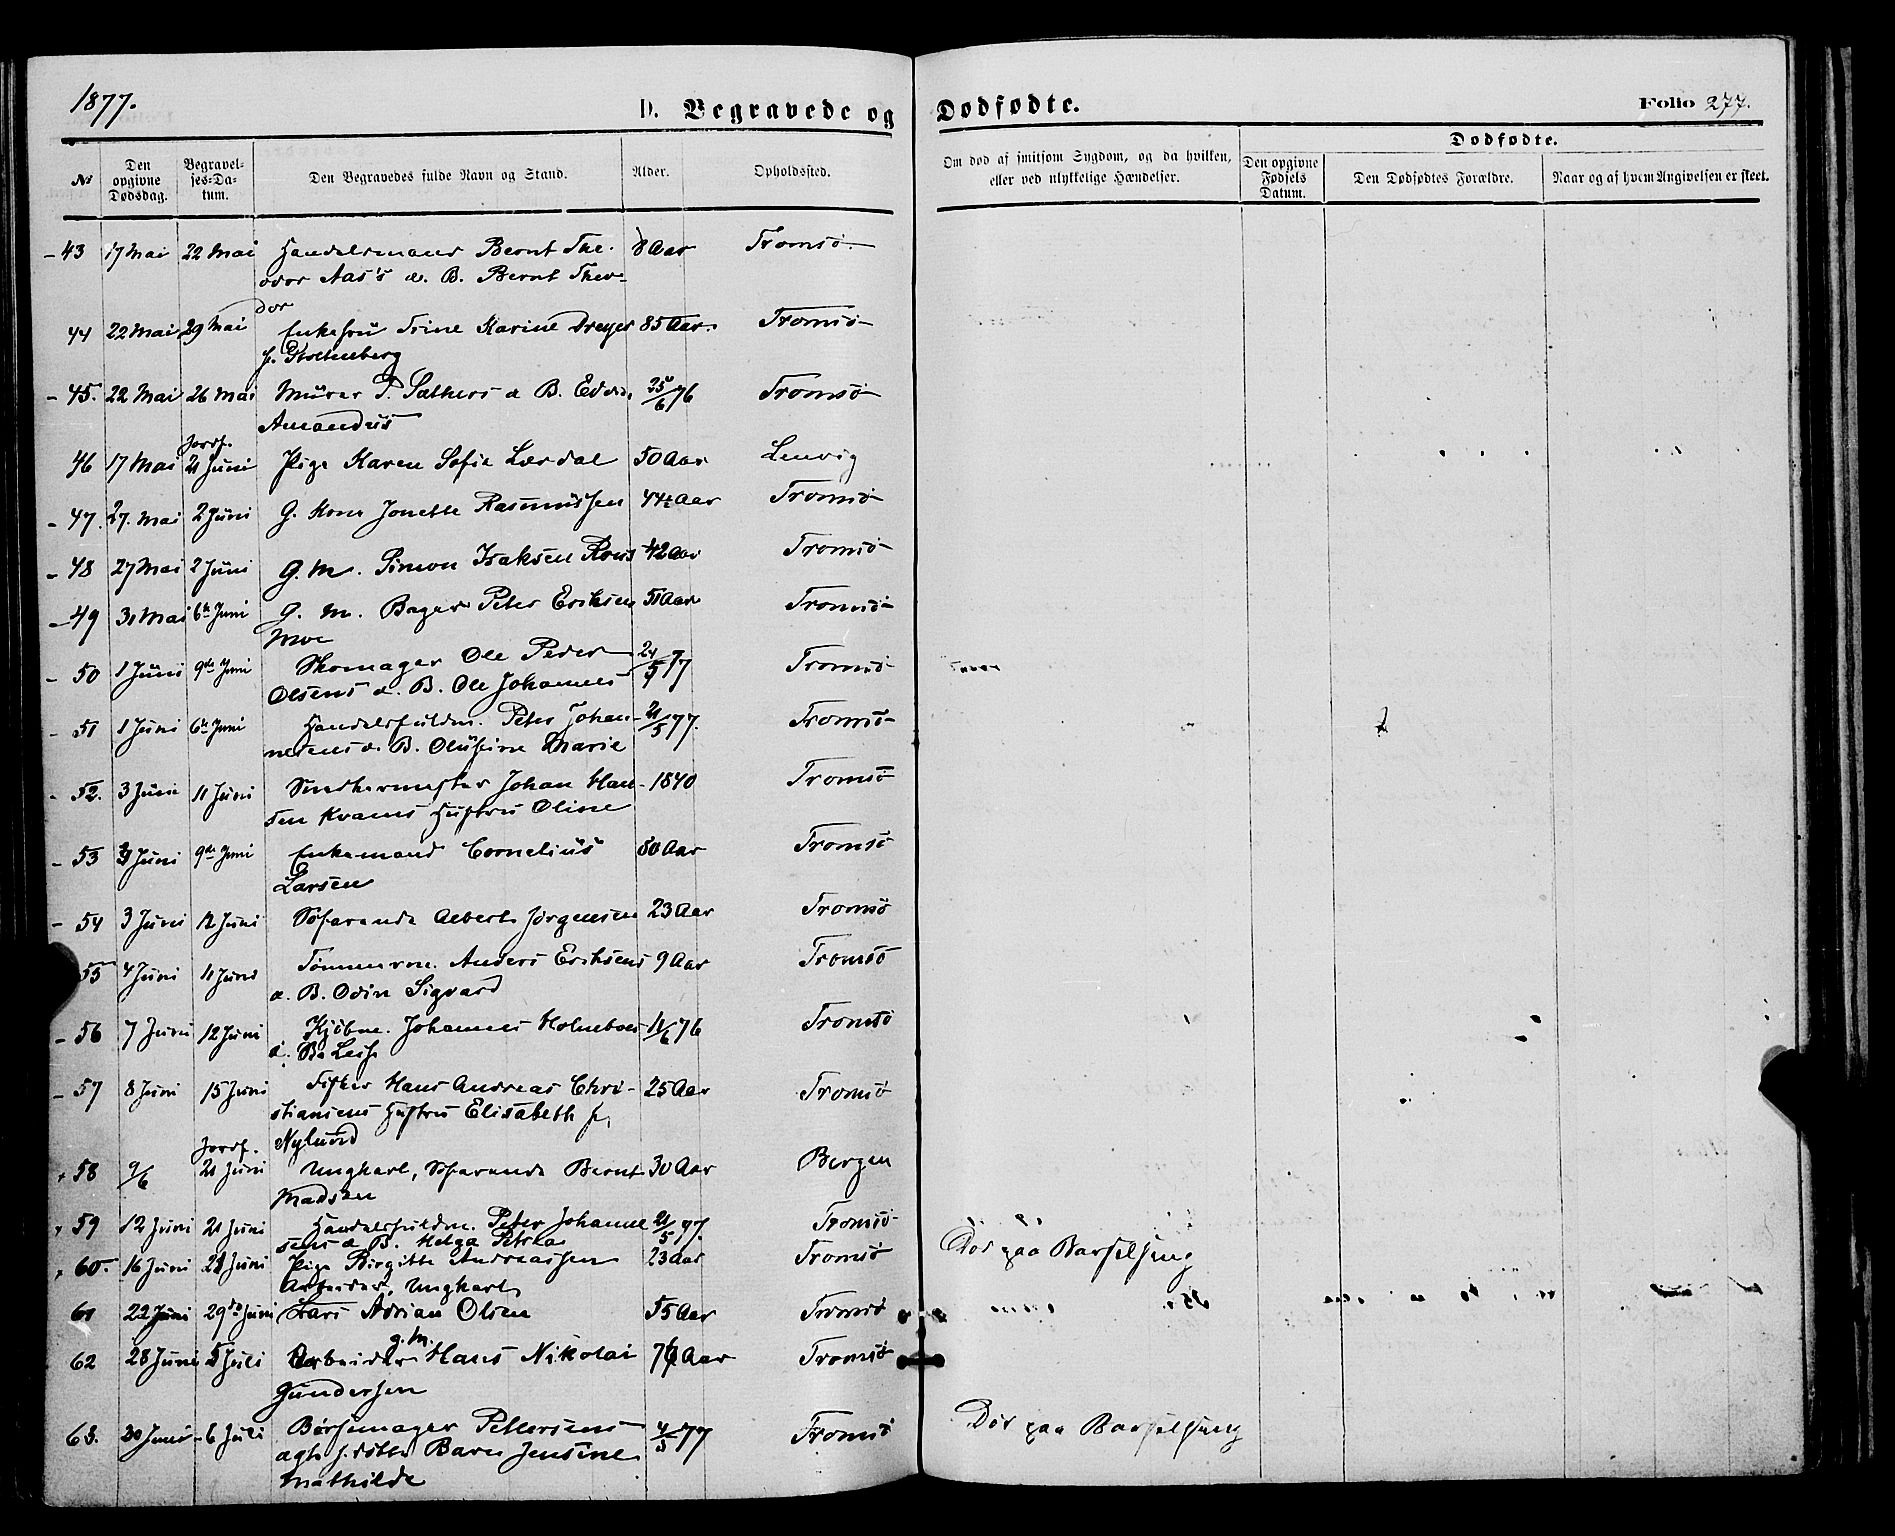 1877.
D. Begravede og Dødfødte.
Folio 277.
No
Den opgivne Dødsdag.
Begravelses-Datum.
Den Begravedes fulde Navn og Stand.
Alder.
Opholdssted.
Om død af smitsom Sygdom, og da hvilken, eller ved ulykkelige Hændelser.
Dødfødte.
Den opgivne Fødsels Datum.
Den Dødfødtes Forældre.
Naar og af hvem Angivelsen er skeet.
43 17 Mai 22 Mai Handelsmand Bernt The- 8 Aar Tromsö
odor Aas's æ. B. Bernt Theo-
dor
44 22 Mai 29 Mai Enkefru Trine Karine Dreyer 85 Aar. Tromsö
f. Stoltenberg
45. 22 Mai 26 Mai Murer P. Sæthers æ B. Edvin 25/6 76 Tromsö
Amandus
Jordf.
46 17 Mai 21 Juni Pige Karen Sofie Lærdal 50 Aar Lenvig
47. 27. Mai 2 Juni G. Kone Jonette Rasmussen 44½ Aar Tromsö
48 27 Mai 2 Juni G. M. Simon Isaksen 42 Aar Tromsö
49 31 Mai 6te Juni G. M. Bager Peter Eriksen 51 Aar Tromsö
Moe
50 1 Juni 9de Juni Skomager Ole Peder 24/5 77 Tromsö
Olsens æ. B. Ole Johannes
51 1 Juni 6te Juni Handelsfuldm. Peter Johan- 21/5 77. Tromsö
nesens æ. B. Olufine Marie
52. 3 Juni 11 Juni Snedkermester Johan Han- 1840 Tromsö
sen Kvams Hustru Oline
53 3 Juni 9de Juni Enkemand Cornelius 80 Aar Tromsö
Larsen
54 3 Juni 12 Juni Søfarende Albert Jørgensen 23 Aar Tromsö
55 4 Juni 11 Juni Tømmerm. Anders Eriksens 9 Aar Tromsö
æ. B. Odin Sigvard
56 7 Juni 12 Juni Kjøbm. Johannes Holmboes 11/6 76 Tromsö
æ. Ba Leif
57 8 Juni 15 Juni Fisker Hans Andreas Chri- 25 Aar Tromsö
stiansens Hustru Elisabeth f.
Nylund
Jordf.
58 9/6 21 Juni Ungkarl, Søfarende Bernt 30 Aar Bergen
Madsen
59 12 Juni 21 Juni Handelsfuldm. Peter Johanne 21/5 77. Tromsö
sens æ B. Helga Petrea
60. 16 Juni 22 Juni Pige Birgitte Andreassen 23 Aar Tromsö Död paa Barselseng
Arbeider, Ungkarl
61 22 Juni 29de Juni Lars Adrian Olsen 55 Aar Tromsö
g. M.
62 28 Juni 5 Juli Arbeider Hans Nikolai Aar Tromsö
Gundersen
63. 30 Juni 6 Juli Børsemager Pettersens 4/3 77 Tromsö Död paa Barselseng
ægtef. Barn Jensine
Mathilde